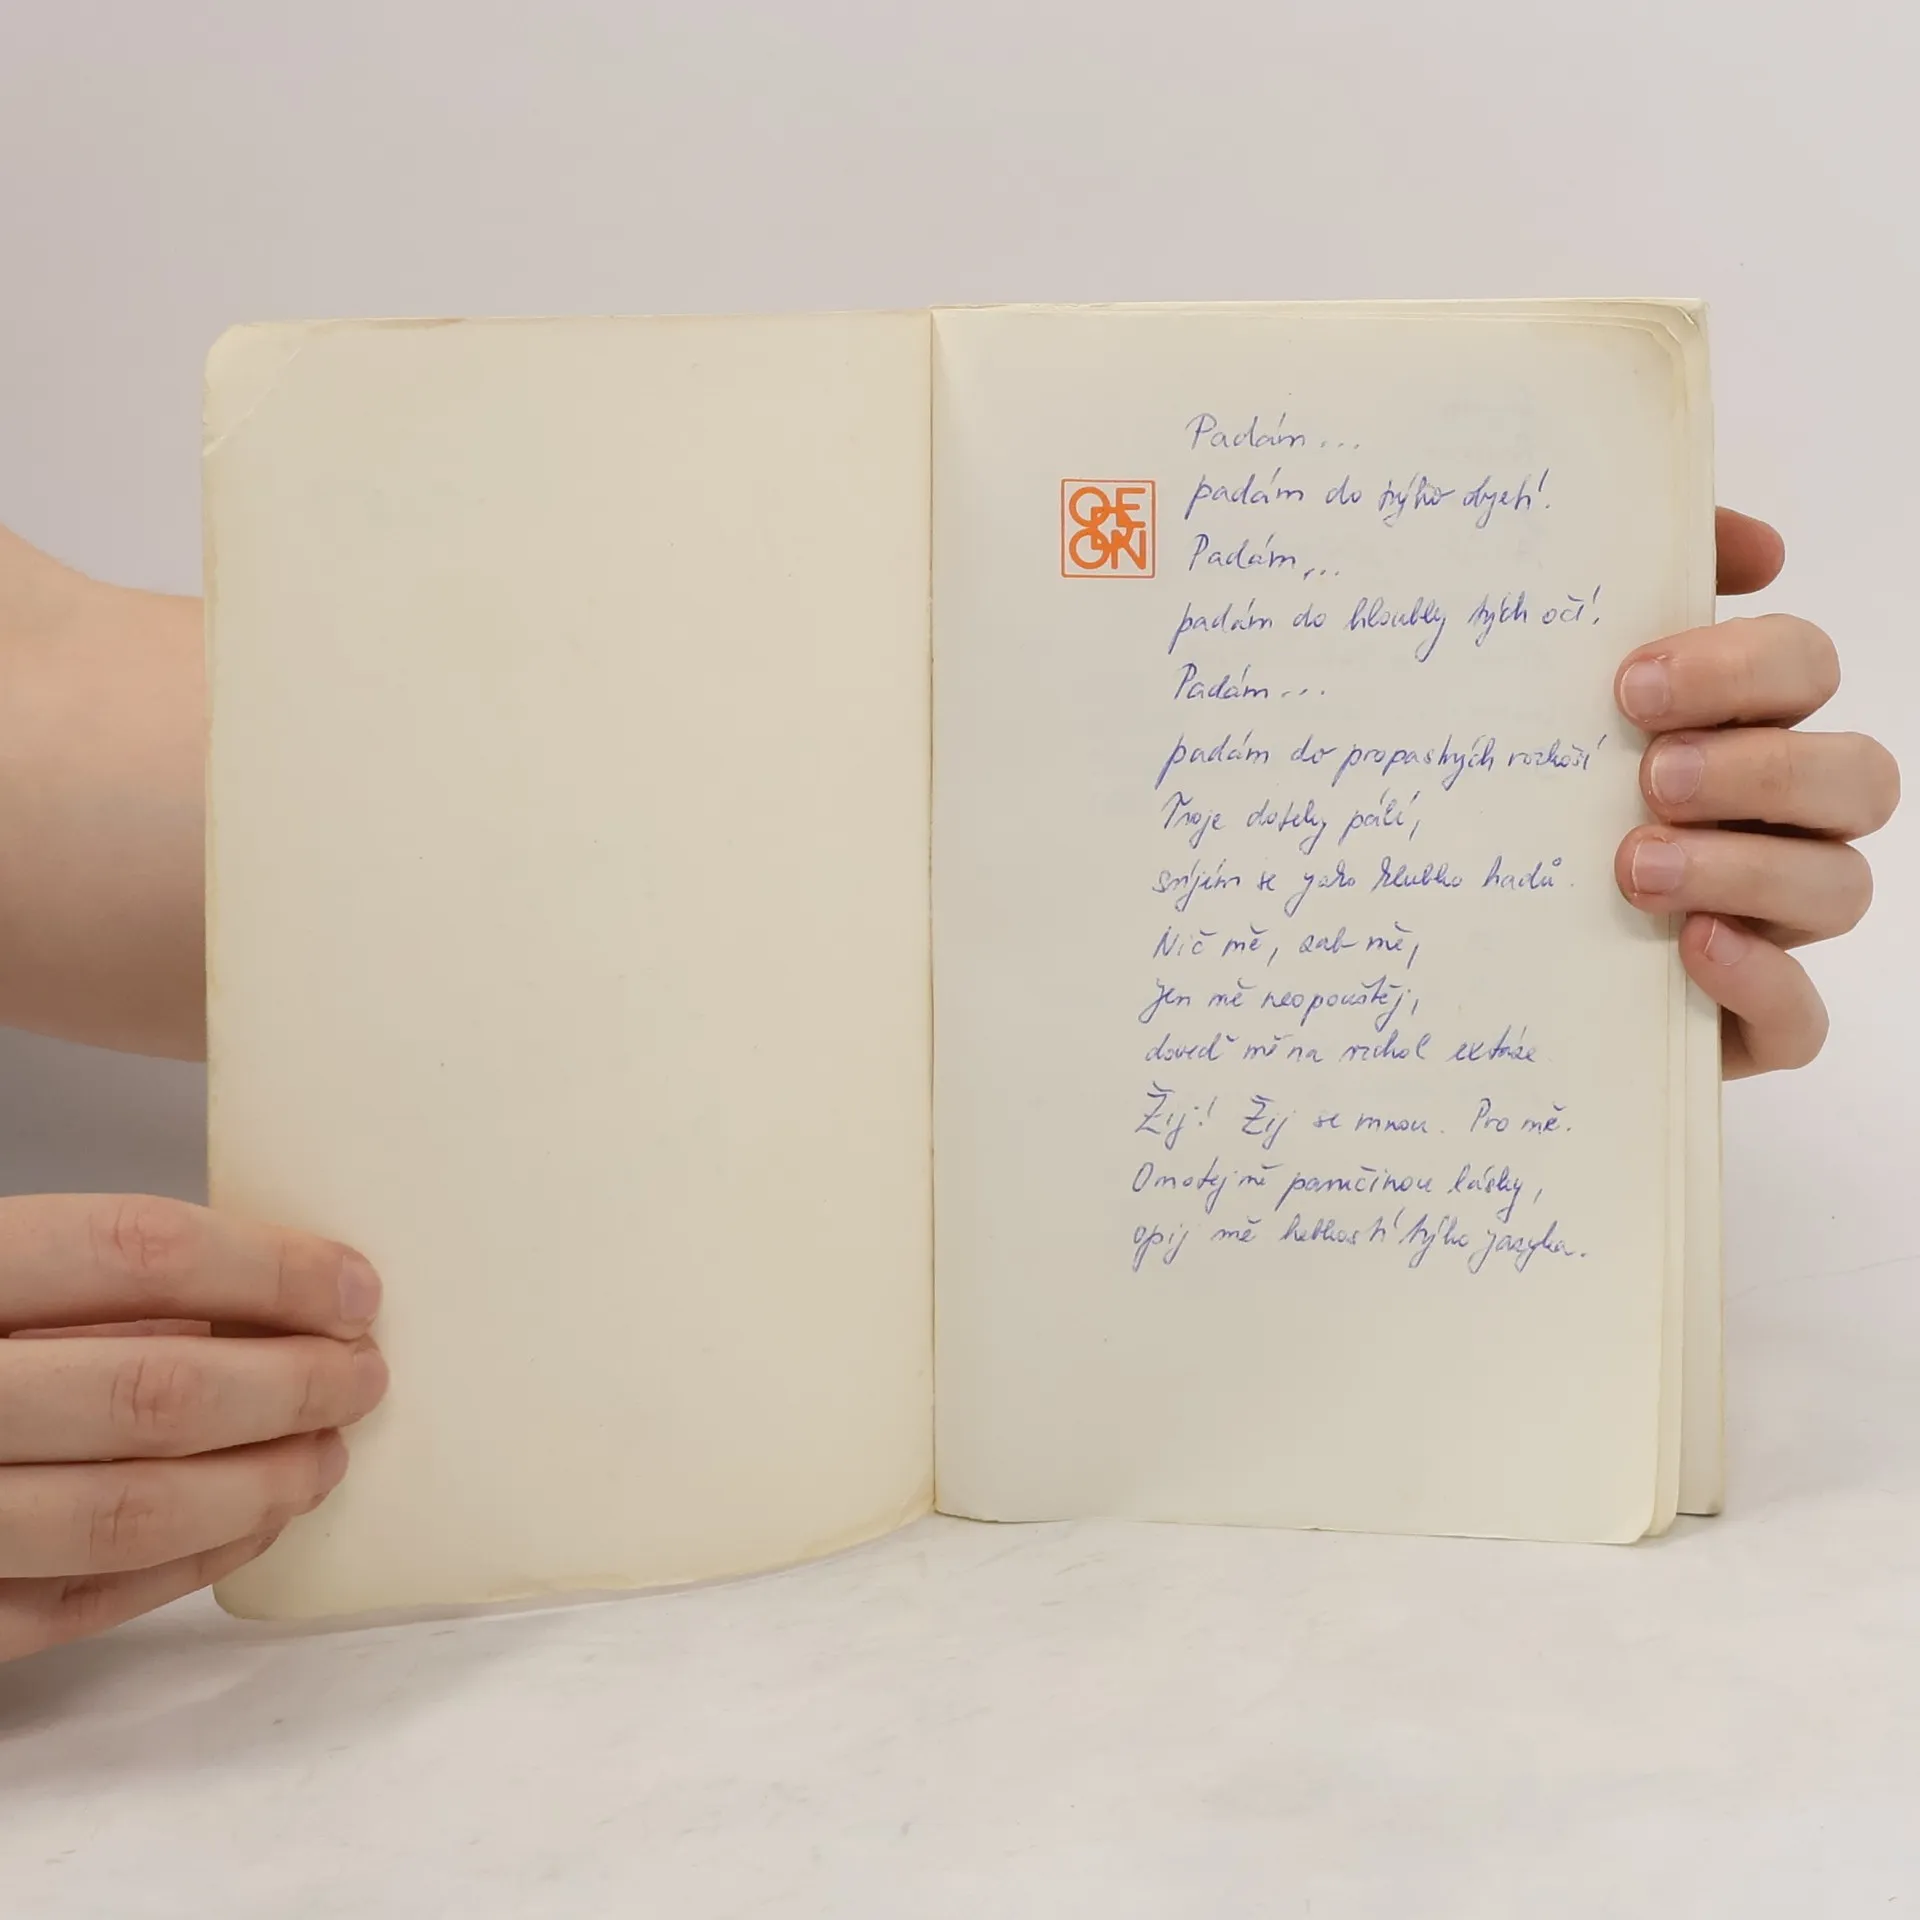 ODEON
Padám...
padám do týho objetí!
Padám...
padám do hloubky tých očí!
Padám...
padám do propastných rozkoší
Tvoje doteky pálí,
svíjím se jako klubko hadů.
Nič mě, zab mě,
jen mě neopouštěj,
doveď mě na vrchol extáze
Žij! Žij se mnou. Pro mě.
Omotej mě pavučinou lásky,
opij mě hebkostí týho jazyka.